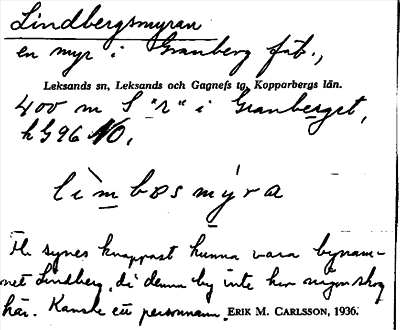 Lindbergsmyran
en myr i Granberg fäb.,
Leksands sn, Leksands och Gagnefs tg, Kopparbergs län.
400 m S "r" i Granberget,
h G 96 NO.
lìmbæsmýra
Fl. synes knappast kunna vara bynam-
net Lindberg, di denna by inte har någon skog
här. Kanske ett personnamn. ERIK M. CARLSSON, 1936.